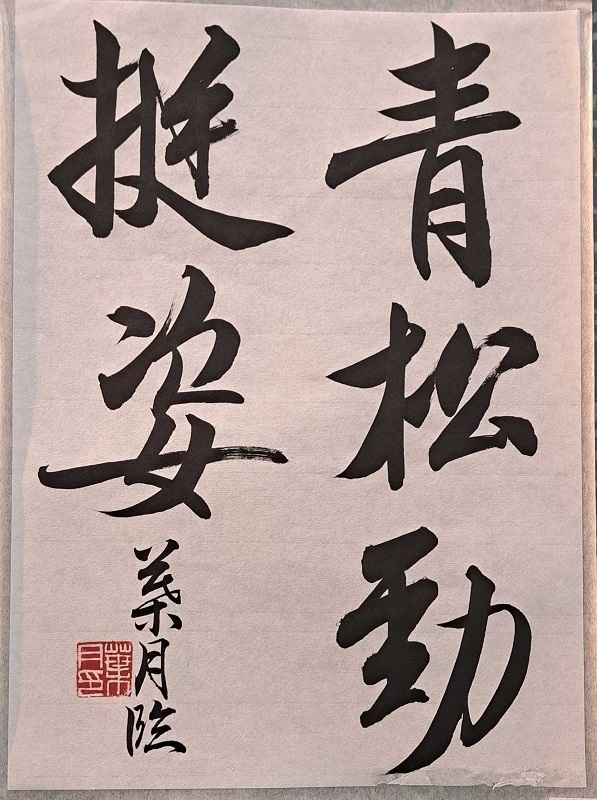 青松勁
挺姿
葉月臨
葉月印